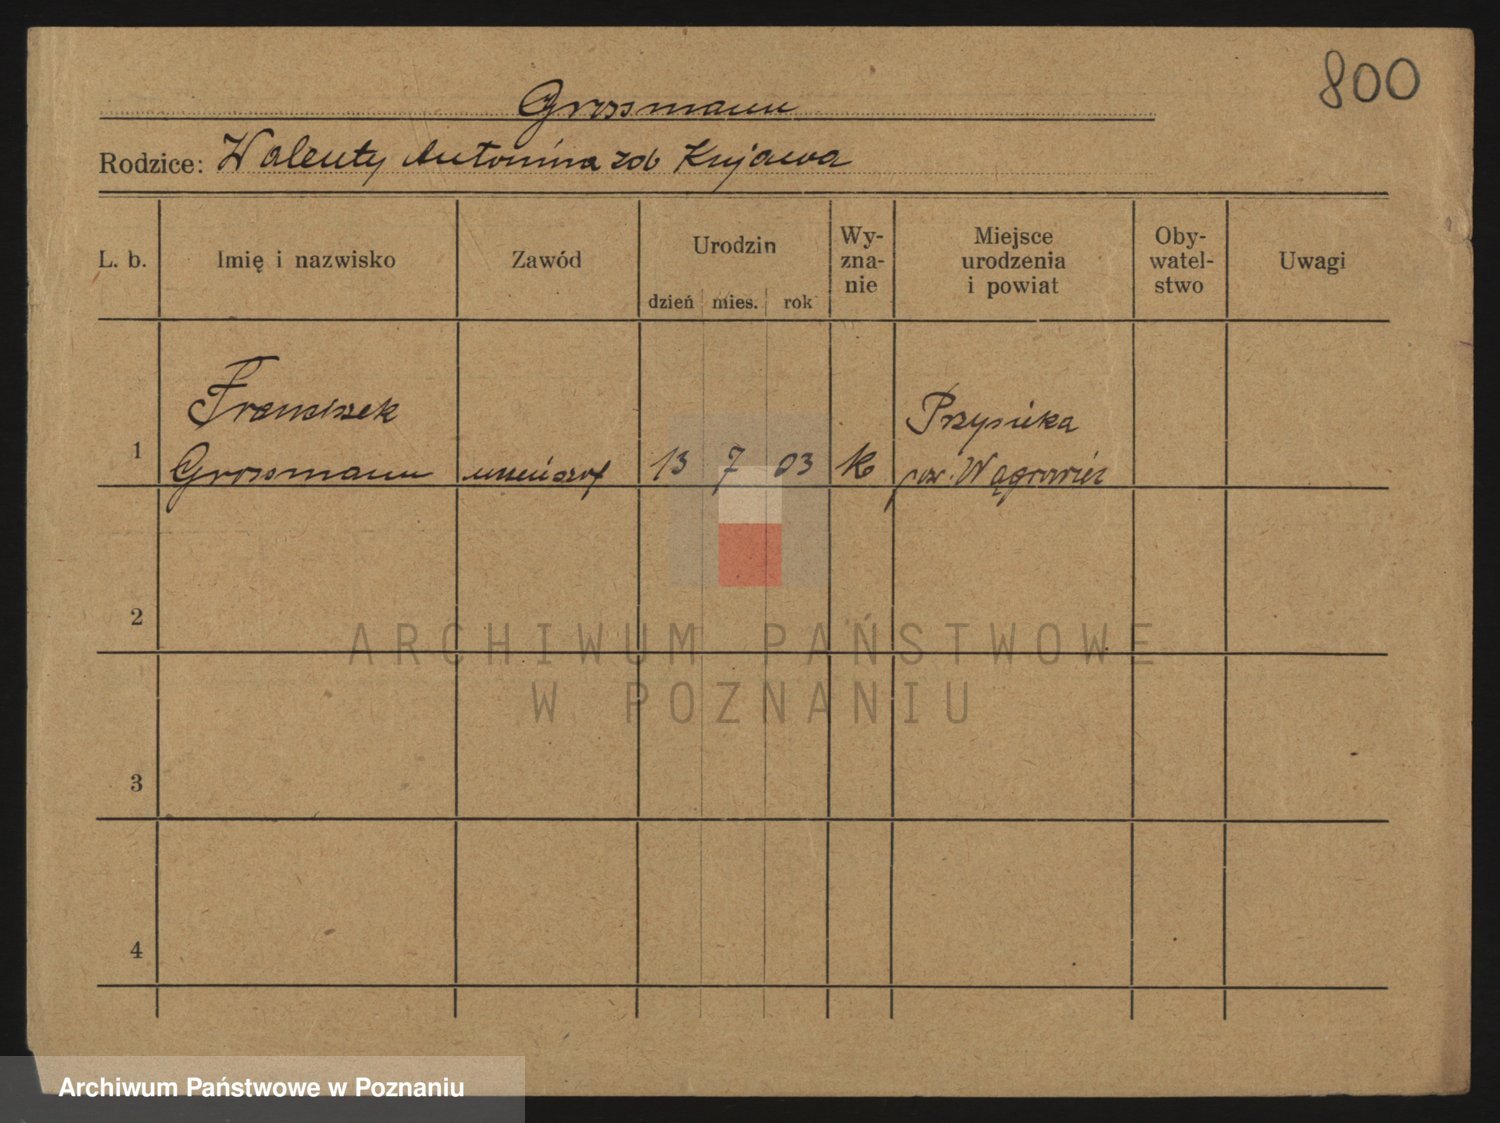 800
Grossmann
Rodzice: Walenty Antonina zob Kujawa
L. b. Imię i nazwisko Zawód Urodzin dzień mies. rok Wy-zna-nie Miejsce urodzenia i powiat Oby-watel-stwo Uwagi
Franciszek
1 Grossmann 13 7 03 k Przysieka
pow. Wągrowiec
2
3
4
ARCHIWUM PAŃSTWOWE
W POZNANIU
Archiwum Państwowe w Poznaniu